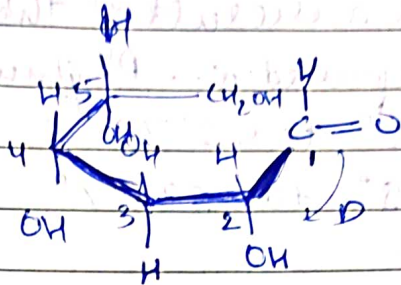 H
H 5 CH2OH H
OH OH H C=O
4 1
OH 3 2 D
H OH